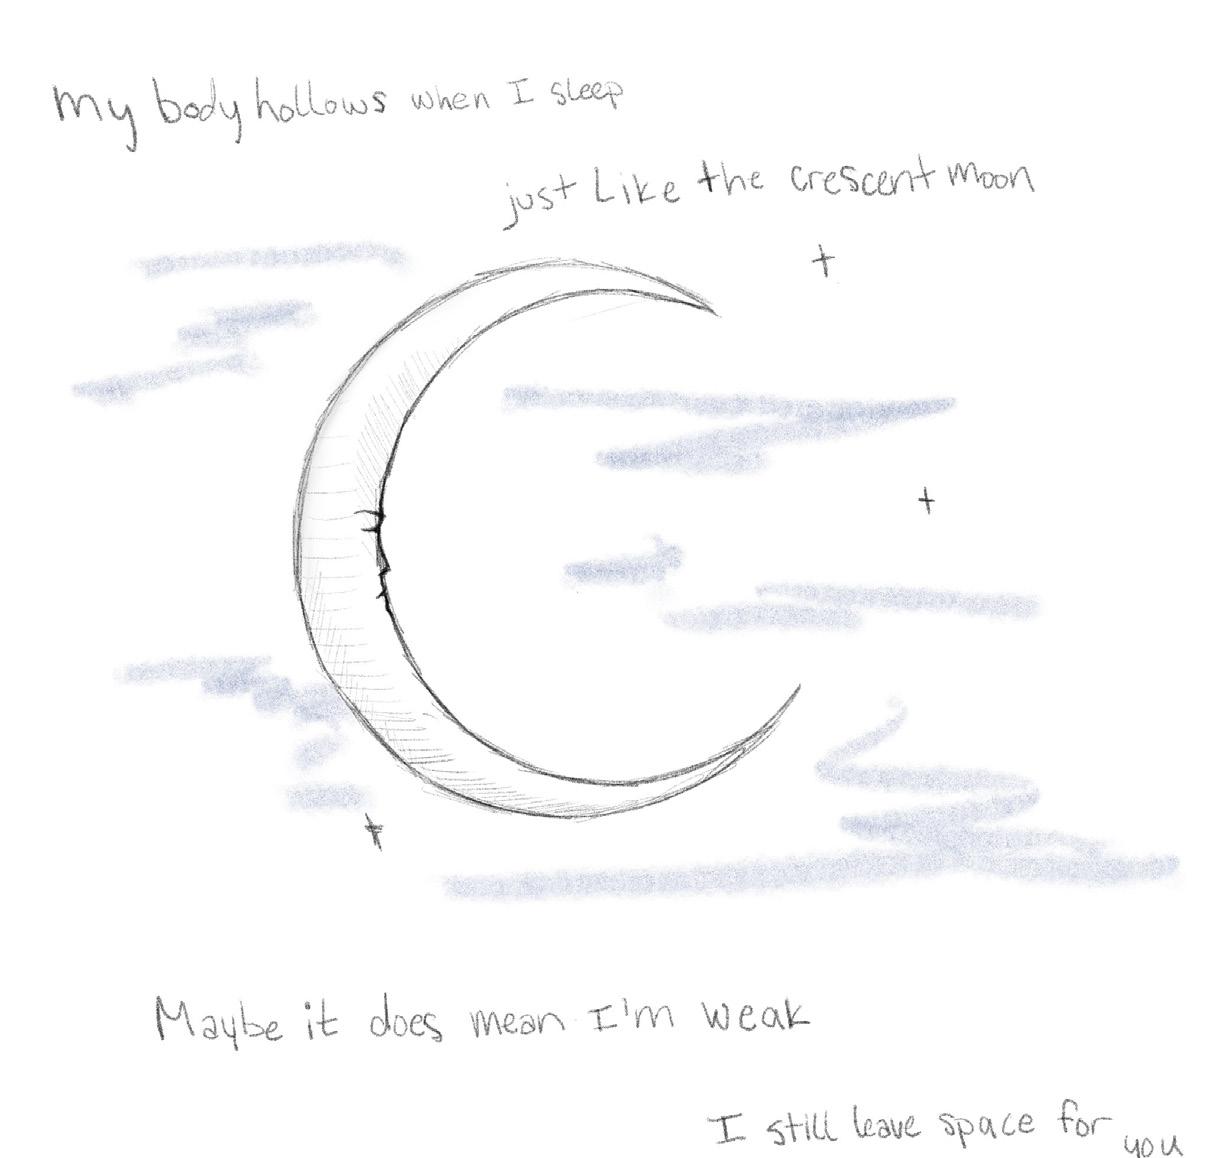 my body hollows when I sleep
just Like the crescent moon
Maybe it does mean I'm weak
I still leave space for you